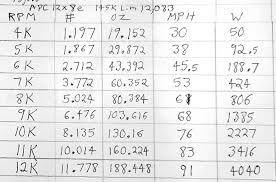 APC 12x8e 145K Lim 12,083
RPM # OZ MPH W
4K 1.197 19.152 30 50
5K 1.867 29.872 38 92.5
6K 2.712 43.392 45.5 188.7
7K 3.772 60.352 53 424
8K 5.024 80.384 61 806
9K 6.476 103.616 68 1385
10K 8.135 130.16 76 2227
11K 10.014 160.224 83 3416
12K 11.778 188.448 91 4040